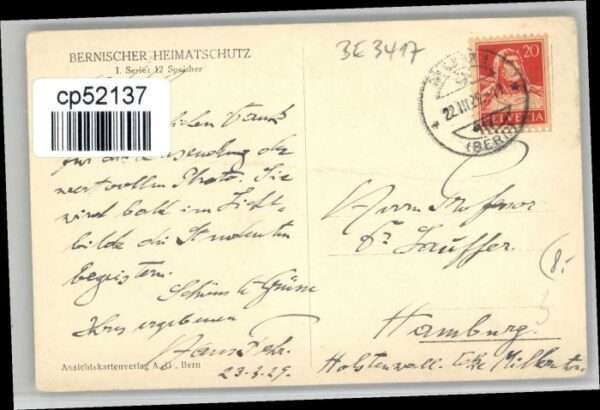 BERNISCHER HEIMATSCHUTZ
1. Serie: 12 Speicher
cp52137
BE 3417
20
HELVETIA
22.III.29
(BERN)
für die Zusendung der
wertvollen Photo. Sie
wird bald im Licht-
bilde die Studenten
begeistern.
Schönste Grüsse
Ihres ergebenen
23.3.29.
Herrn Professor
Dr Lauffer.
Hamburg.
Holstenwall. Ecke
8.-
Ansichtskartenverlag A.-G., Bern